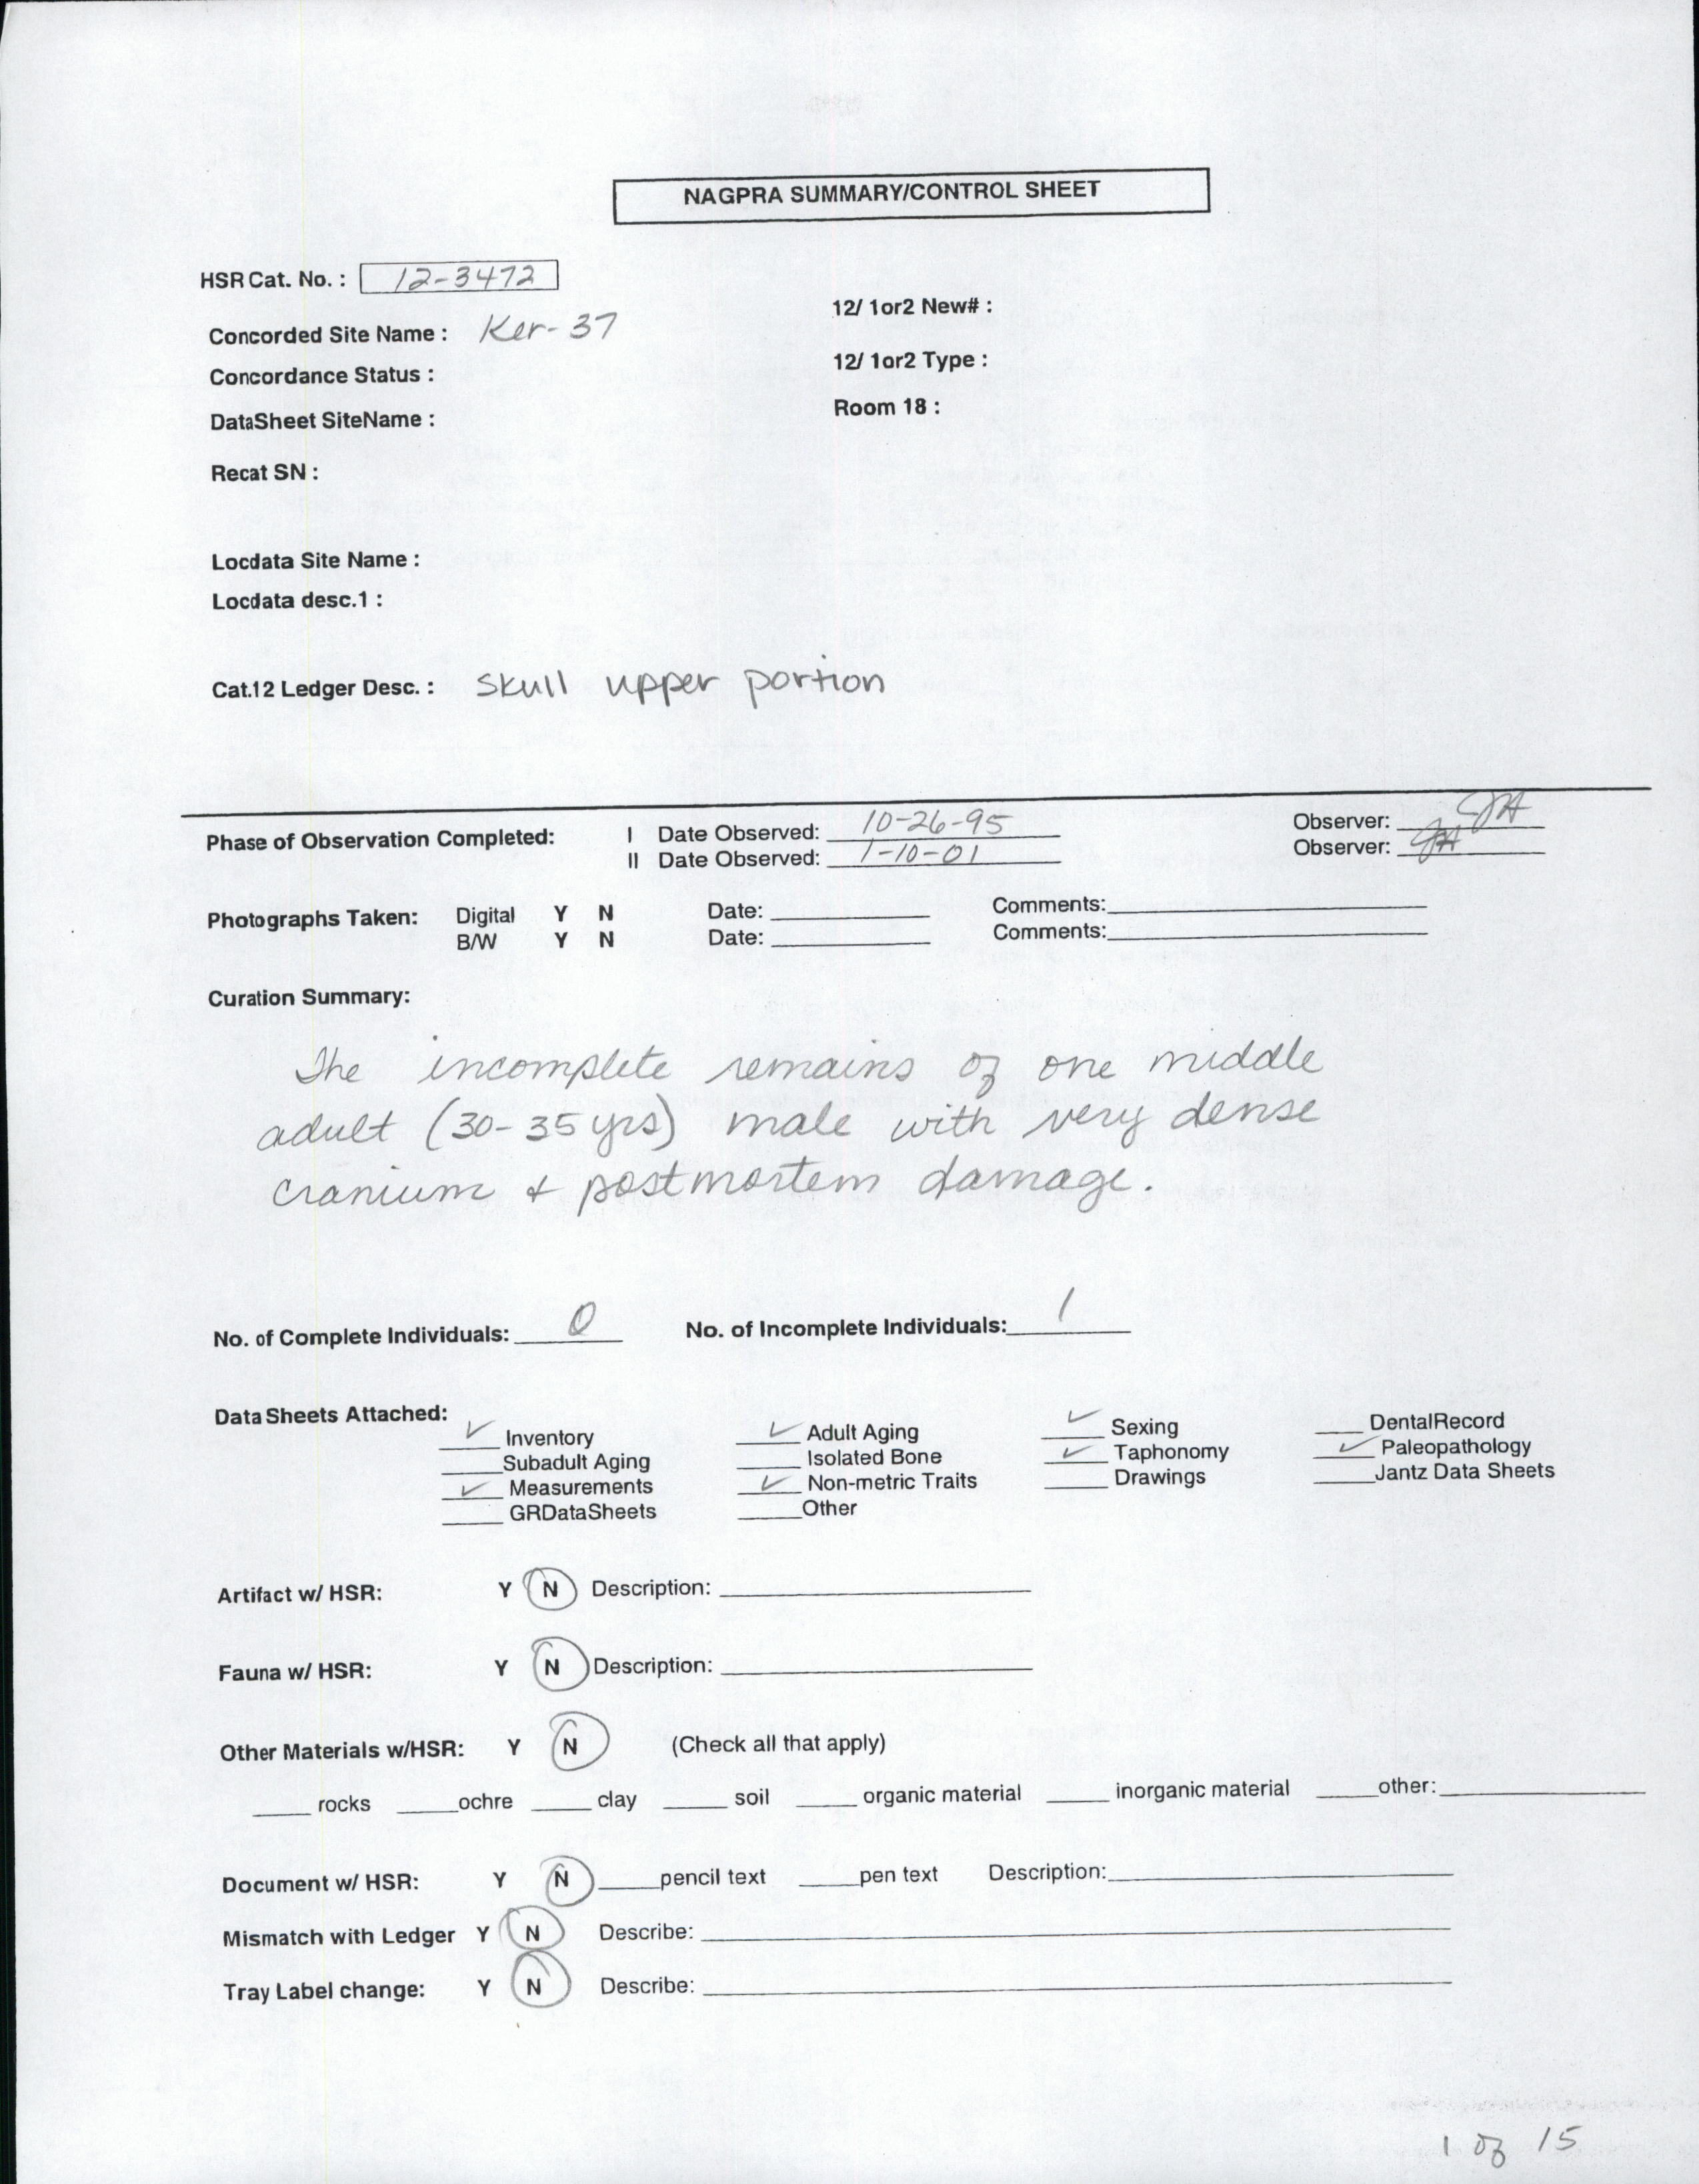 NAGPRA SUMMARY/CONTROL SHEET
HSR Cat. No. : 12-3472
12/ 1or2 New# :
Concorded Site Name : Ker-37
12/ 1or2 Type :
Concordance Status :
Room 18 :
DataSheet SiteName :
Recat SN :
Locdata Site Name :
Locdata desc.1 :
Cat.12 Ledger Desc. : Skull upper portion
Phase of Observation Completed: I Date Observed: 10-26-95 Observer: JA
II Date Observed: 1-10-01 Observer: JA
Photographs Taken: Digital Y N Date: Comments:
B/W Y N Date: Comments:
Curation Summary:
The incomplete remains of one middle
adult (30-35 yrs) male with very dense
cranium & postmortem damage.
No. of Complete Individuals: 0 No. of Incomplete Individuals: 1
Data Sheets Attached:
✓ Inventory ✓ Adult Aging ✓ Sexing DentalRecord
Subadult Aging Isolated Bone ✓ Taphonomy ✓ Paleopathology
✓ Measurements ✓ Non-metric Traits Drawings Jantz Data Sheets
GRDataSheets Other
Artifact w/ HSR: Y N Description:
Fauna w/ HSR: Y N Description:
Other Materials w/HSR: Y N (Check all that apply)
rocks ochre clay soil organic material inorganic material other:
Document w/ HSR: Y N pencil text pen text Description:
Mismatch with Ledger Y N Describe:
Tray Label change: Y N Describe:
1 of 15